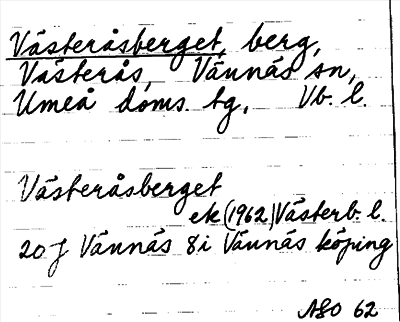 Västeråsberget, berg,
Västerås, Vännäs sn,
Umeå doms. tg, Vb. l.
Västeråsberget
ek (1962) Västerb. l.
20 J Vännäs 8 i Vännäs köping
ASO 62